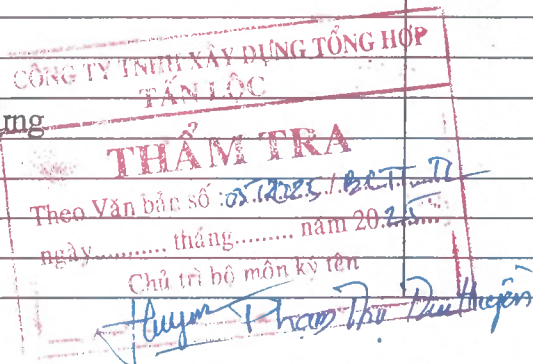 CÔNG TY TNHH XÂY DỰNG TỔNG HỢP
TẤN LỘC
ựng
THẨM TRA
Theo Văn bản số : 05/2025/BCTT-TL
ngày........... tháng......... năm 2025
Chủ trì bộ môn ký tên
Phạm Thị Thu Huyền